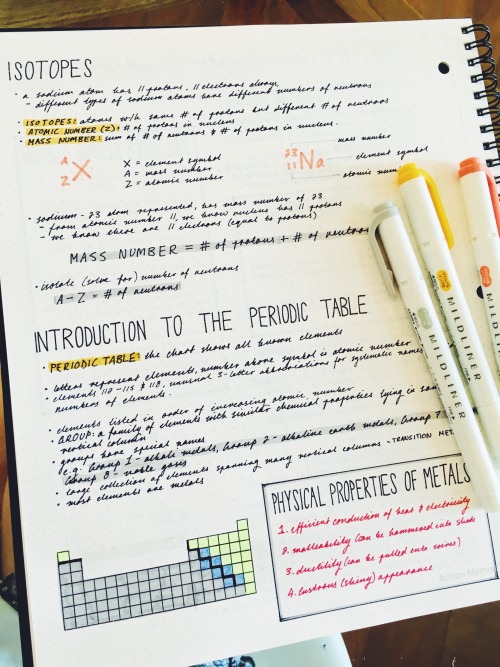 ISOTOPES
• a sodium atom has 11 protons, 11 electrons always,
- different types of sodium atoms have different numbers of neutrons
• ISOTOPES: atoms w/ same # of protons but different # of neutrons
• ATOMIC NUMBER (Z): # of protons in nucleus
• MASS NUMBER: sum of # of neutrons & # of protons in nucleus.
A
Z X
X = element symbol
A = mass number
Z = atomic number
23
11 Na
mass number
element symbol
atomic
• sodium - 23 atom represented, has mass number of 23
- from atomic number 11, we know nucleus has 11 protons
- we know there are 11 electrons (equal to protons)
MASS NUMBER = # of protons + # of neutrons
• isolate (solve for) number of neutrons
A-Z = # of neutrons
INTRODUCTION TO THE PERIODIC TABLE
• PERIODIC TABLE: the chart shows all known elements
• letters represent elements, number above symbol is atomic number
• elements 112-115 & 118, unusual 3-letter abbreviations for systematic names
numbers of elements.
• elements listed in order of increasing atomic number
• GROUP: a family of elements with similar chemical properties lying in
vertical column
• groups have special names
(e.g. Group 1 - alkali metals, Group 2 - alkaline earth metals, Group 7
Group 8 - noble gases
• large collection of elements spanning many vertical columns - TRANSITION
• most elements are metals
PHYSICAL PROPERTIES OF METALS
1. efficient conduction of heat & electricity
2. malleability (can be hammered into sheets
3. ductility (can be pulled into wires)
4. lustrous (shiny) appearance
MILDLINER
MILDLINER
MILDLINER